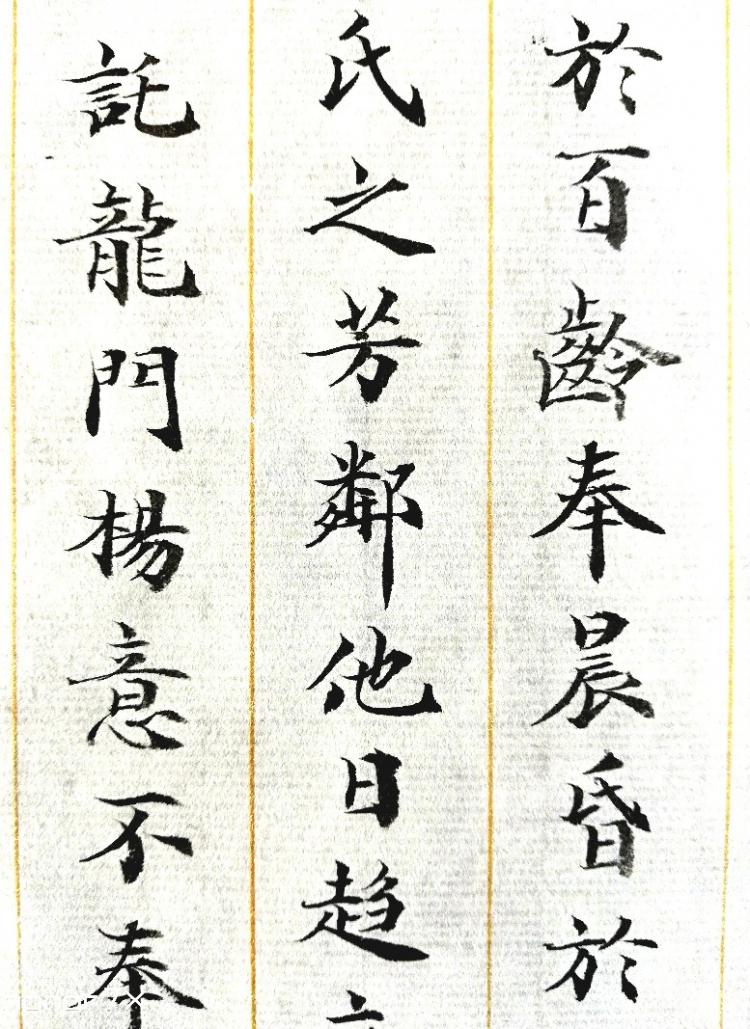 於百齡奉晨昏於
氏之芳鄰他日趨
託龍門楊意不奉